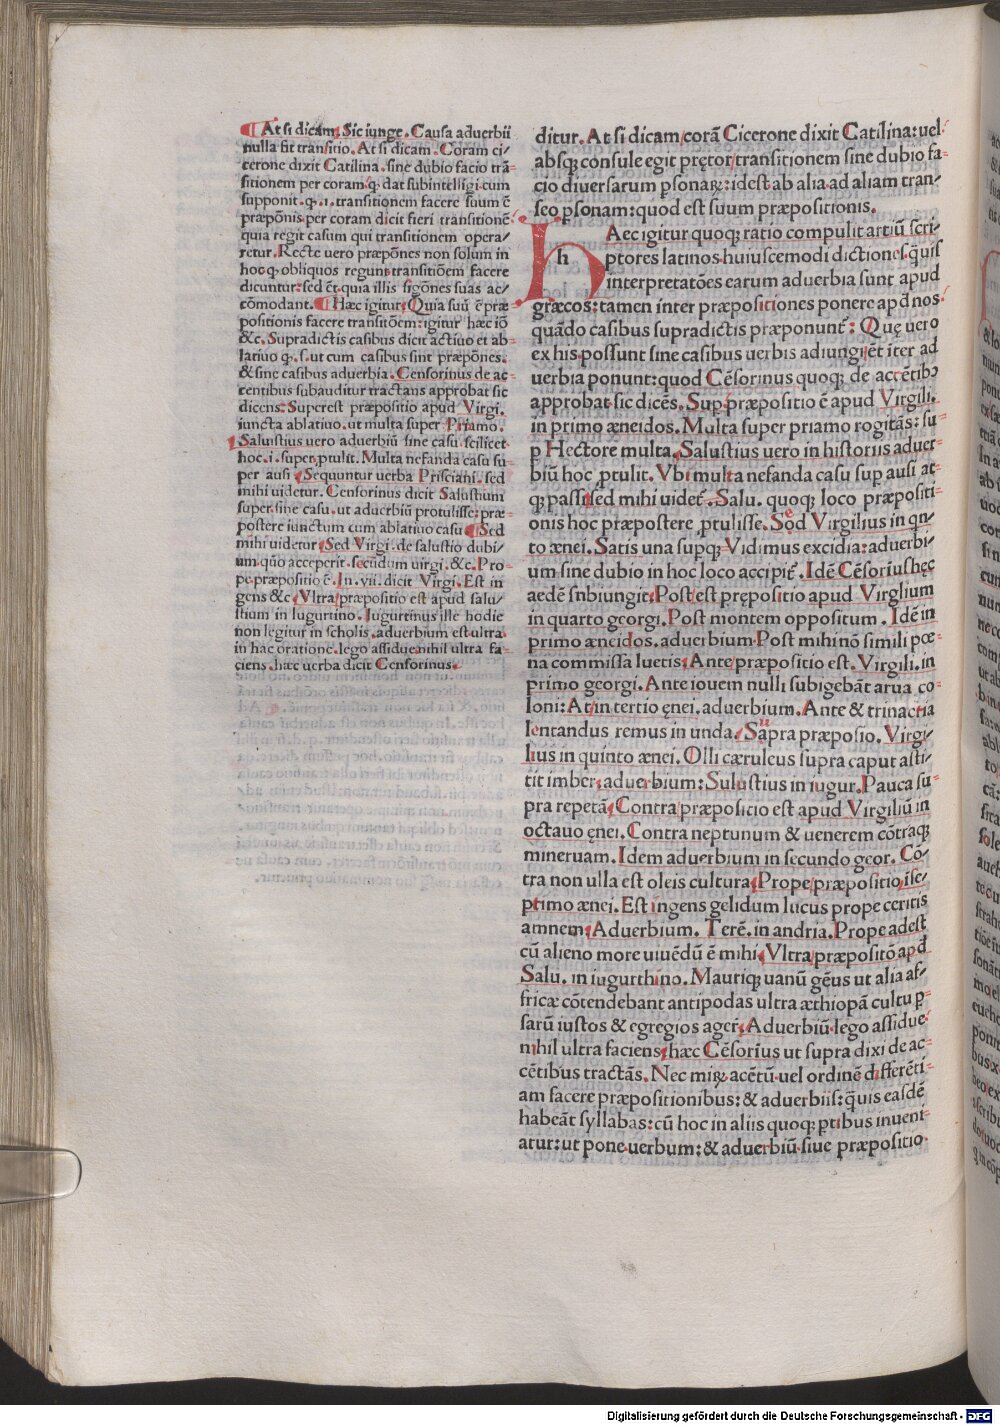 ¶ At si dicam. Sic iunge. Causa aduerbii
nulla fit transitio. At si dicam. Coram ci/
cerone dixit Catilina. sine dubio facio trã
sitionem per coram. q. dat subintelligi cum
supponit. q. i. transitionem facere suum ē
præpōnis per coram dicit fieri transitionē
quia regit casum qui transitionem opera/
retur. Recte uero præpōnes non solum in
hoc q obliquos regunt transitiōem facere
dicuntur: sed ēt quia illis sigōnes suas ac/
cōmodant. ¶ Hæc igitur. Quia suū ē præ
positionis facere transitōem: igitur hæc iō
&c. Supradictis casibus dicit actiuo et ab/
latiuo q. s. ut cum casibus sint præpōnes.
& sine casibus aduerbia. Censorinus de ac
centibus subauditur tractans approbat sic
dicens: Superest præpositio apud Virgi.
iuncta ablatiuo. ut multa super Priamo.
Salustius uero aduerbiū sine casu. scilicet
hoc. i. super ptulit. Multa nefanda casu su
per ausi Sequuntur uerba Prisciani. sed
mihi uidetur. Censorinus dicit Salustium
super sine casu. ut aduerbiū protulisse: præ
postere iunctum cum ablatiuo casu ¶ Sed
mihi uidetur Sed Virgi. de salustio dubi/
um. quō acceperit. secūdum uirgi. &c. Pro
pe præpositio ē. In .vii. dicit Virgi. Est in
gens &c Vltra præpositio est apud salu/
stium in Iugurtino. Iugurtinus ille hodie
non legitur in scholis. aduerbium est ultra.
in hac oratione. lego assidue nihil ultra fa/
ciens. hæc uerba dicit Censorinus.
ditur. At si dicam corã Cicerone dixit Catilina: uel
absq; consule egit prętor transitionem sine dubio fa/
cio diuersarum psonaꝝ: idest ab alia ad aliam tran/
seo psonam: quod est suum præpositionis.
h
HAec igitur quoq; ratio compulit artiū scri/
ptores latinos huiuscemodi dictiones. q̃uis
interpretatōes earum aduerbia sunt apud
græcos: tamen inter præpositiones ponere apd nos.
quãdo casibus supradictis præponunt᷑: Quę uero
ex his possunt sine casibus uerbis adiungi ēt īter ad
uerbia ponunt: quod Cēsorinus quoq; de accētibꝰ
approbat sic dicēs. Sup præpositio ē apud Virgili.
in primo æneidos. Multa super priamo rogitãs: su/
p Hectore multa. Salustius uero in historiis aduer
biū hoc ptulit. Vbi multa nefanda casu sup ausi at/
q; passi sed mihi uidet᷑. Salu. quoq; loco præpositi/
onis hoc præpostere ptulisse. Sed Virgilius in qn/
to ænei. Satis una supq; Vidimus excidia: aduerbi/
um sine dubio in hoc loco accipit᷑. Idē Cēsorius hęc
aedē snbiungit Post est prępositio apud Virglium
in quarto georgi. Post montem oppositum. Idē in
primo æneidos. aduerbium Post mihi nō simili pœ/
na commissã luetis Ante præpositio est. Virgili. in
primo georgi. Ante iouem nulli subigebãt arua co/
loni: At in tertio ęnei. aduerbium. Ante & trinactia
lentandus remus in unda. Supra præposio. Virgi/
lius in quinto ænei. Olli cæruleus supra caput asti/
tit imber aduerbium: Sulustius in iugur. Pauca su/
pra repetã Contra præpositio est apud Virgiliū in
octauo ęnei. Contra neptunum & uenerem cōtraq;
mineruam. Idem aduerbium in secundo geor. Cō/
tra non ulla est oleis cultura Prope præpositio ī se/
ptimo ænei. Est ingens gelidum lucus prope ceritis
amnem Aduerbium. Terē. in andria. Prope adest
cū alieno more uiuēdū ē mihi Vltra præpositō apd
Salu. in iugurthino. Mauriq; uanū gēus ut alia af/
fricæ cōtendebant antipodas ultra æthiopã cultu p/
sarū iustos & egregios ager Aduerbiū lego assidue
nihil ultra faciens hæc Cēsorius ut supra dixi de ac/
cētibus tractãs. Nec miꝝ acētū uel ordinē differēti/
am facere præpositionibus: & aduerbiis: q̃uis easdē
habeãt syllabas: cū hoc in aliis quoq; ptibus inueni
atur: ut pone uerbum: & aduerbiū siue præpositio
Digitalisierung gefördert durch die Deutsche Forschungsgemeinschaft - DFG